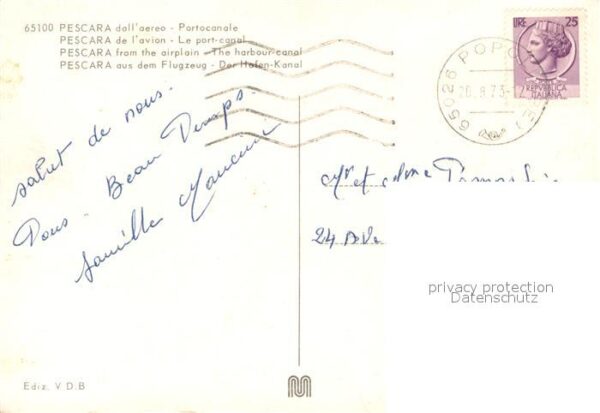 65100 PESCARA dall'aereo - Portocanale
PESCARA de l'avion - Le port-canal
PESCARA from the airplain - The harbour-canal
PESCARA aus dem Flugzeug - Der Hafen-Kanal
LIRE 25
REPVBBLICA
ITALIANA
65026 POPOLI
10.8.73-12
salut de nous.
Tous. Beau Temps.
famille Mancini
Mr et Mme
24 Ave
privacy protection
Datenschutz
Ediz. V.D.B